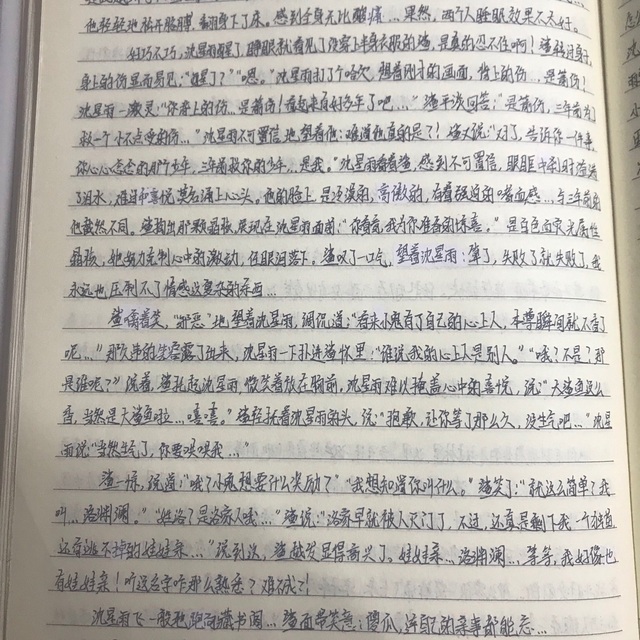 他轻轻地拆开胳膊，翻身下了床，感到全身无比酸痛…果然，两个人睡眠效果不太好。
好巧不巧，沈星雨醒了，睁眼就看见了没穿上半身衣服的渣，是真的忍不住啊！渣转过身子，
身上的伤显而易见："醒了？""嗯。"沈星雨打了个哈欠，想着刚才的画面，背上的伤…是箭伤！
沈星雨一激灵："你背上的伤…是箭伤！看起来有好多年了吧……"渣平淡回答："是箭伤，三年前为了
救一个小不点受的伤…"沈星雨不可置信地望着他：难道他真的是了！渣又说："对了，告诉你一件事，
你心心念念的那个少年，三年前救你的少年…是我。"沈星雨看着渣，感到不可置信，眼眶中刹时溢满
了泪水，难过和喜悦莫名涌上心头。他的脸上是淡漠的，高傲的，有着强迫的嘴面感…与三年前的
他截然不同。渣掏出那颗晶核，展现在沈星雨面前："你看看，我为你准备的惊喜。"是白色荧光属性
晶核，她努力克制心中的激动，任眼泪落下。渣叹了一口气，望着沈星雨：算了，失败了就失败了，我
永远也压制不了情感这复杂的东西…
渣噙着笑，"邪恶"地望着沈星雨，调侃道："看来小鬼有了自己的心上人，本尊瞬间就不香了
呢…"那久违的笑容露了出来，沈星雨一下扑进渣怀里："谁说我的心上人是别人。""哦？不是？那
是谁呢？"说着，渣扎起沈星雨，微笑着放在胸前，沈星雨难以掩盖心中的喜悦，说："大渣鱼这么
香，当然是大渣鱼啦…嘻嘻。"渣轻抚着沈星雨的头，说："抱歉，让你等了那么久，没生气吧…"沈星
雨说："当然生气了，你要哄哄我…"
渣一怔，说道："哦？小鬼想要什么奖励？""我想知道你叫什么。"渣笑了："就这么简单？我
叫…洛渊澜。""姓洛？是洛家人哦…"渣说："洛家早就被人灭门了，不过，还真是剩下我一个独苗
还有逃不掉的娃娃亲…"说到这，渣越发显得高兴了。娃娃亲…洛渊澜…等等，我好像也
有娃娃亲！听这名字咋那么熟悉？难不成？！
沈星雨飞一般地跑向藏书阁…渣面带笑意：傻瓜，连自己的亲事都能忘。